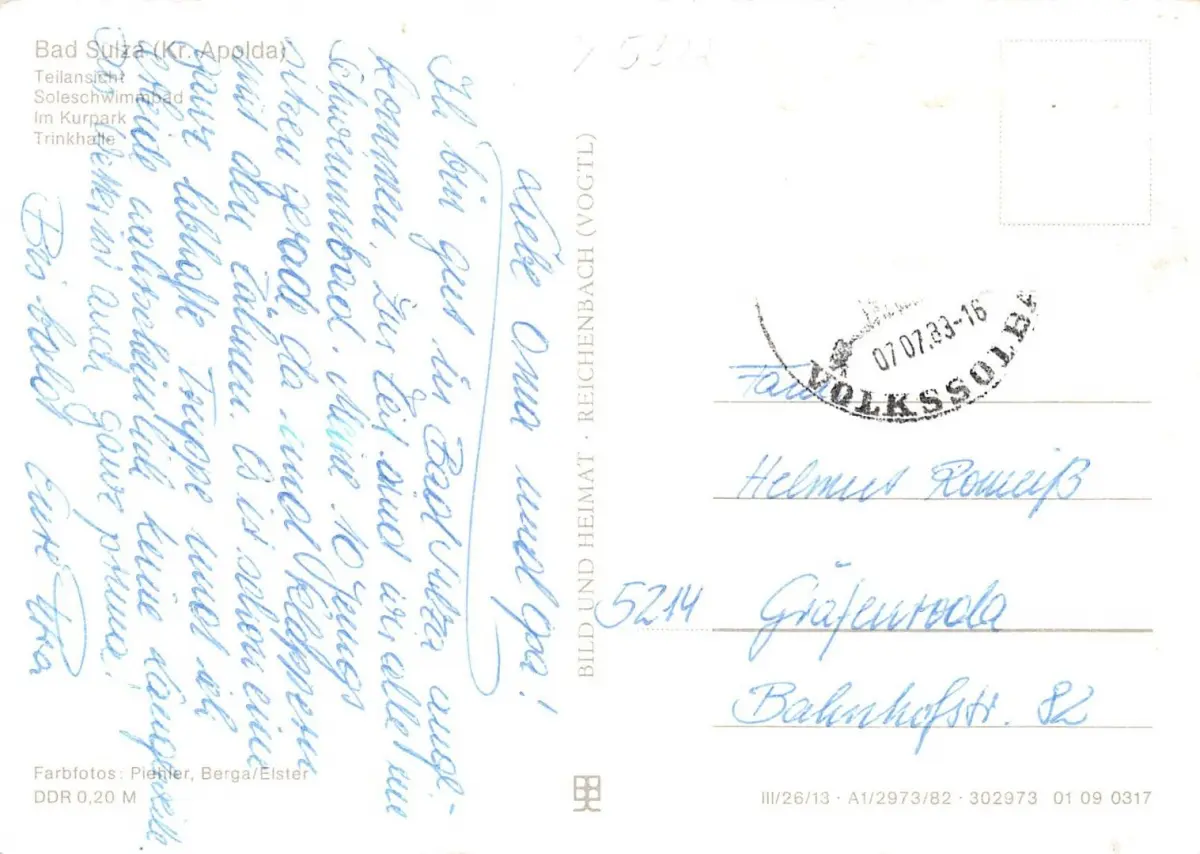 Bad Sulza (Kr. Apolda)
Teilansicht
Soleschwimmbad
Im Kurpark
Trinkhalle
Liebe Oma und Opa!
Ich bin gut in Bad Sulza ange-
kommen. Zur Zeit sind wir alle im
Schwimmbad. Meine 10 Jungs
sitzen gerade da und klappern
mit den Zähnen. Es ist schon eine
ganz lebhafte Truppe und ich
leide wahrscheinlich keine Langeweile
Das Wetter ist auch ganz prima!
Bis bald Eure Petra
BILD UND HEIMAT · REICHENBACH (VOGTL)
07.07.83-16
VOLKSSOL
Fam
Helmut Romeiß
5214 Gräfenroda
Bahnhofstr. 82
Farbfotos: Piehler, Berga/Elster
DDR 0,20 M
III/26/13 · A1/2973/82 · 302973 01 09 0317